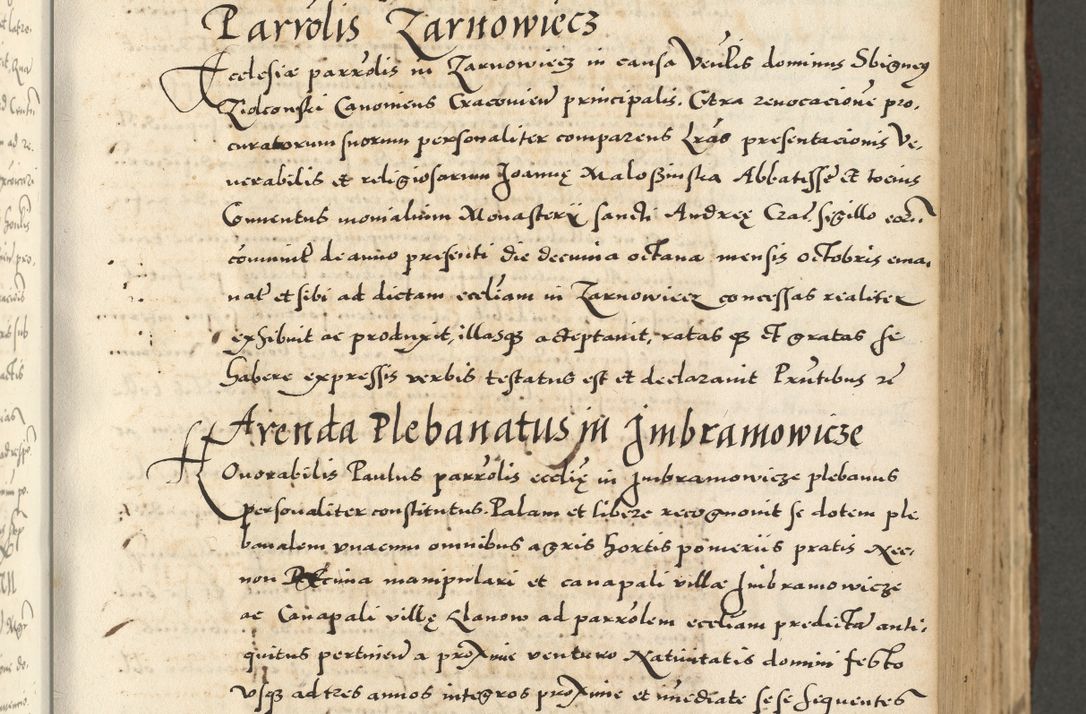 Parrōlis Zarnowiecz
Ecclesiæ parrōlis in Zarnowiecz in causa Venlis dominus Sbigneus
Ziolconski Canonicus Cracovien̄ principalis. Citra revocacione pro,
curatorum suorum personaliter comparens Lrās presentacionis Ve,
nerabilis et religiosarum Joannę Maloszinska Abbatissę et tocius
Conuentus monialium Monasterij sancti Andreę Crac̄ sigillo eorū
comunil̄ de anno presenti die decima octaua mensis octobris ema,
nat̄ et sibi ad dictam eccliam in Zarnowiecz concessas realiter
exhibuit ac produxit, illasqȝ acceptauit, ratas qȝ et gratas se
habere expressis verbis testatus est et declarauit Prn̄tibus rē
Arenda Plebanatus in Jmbramowicze
Honorabilis Paulus parrōlis eccliȩ in Jmbramowicze plebanus
personaliter constitutus. Palam et libere recognouit se dotem ple
banalem vnacum omnibus agris hortis pomeriis pratis Nec,
non decima manipulari et canapali villæ Jmbramowicze
ac Canapali villę Llanow ad parrōlem eccliam predictā anti,
quitus pertinen̄ a proxime venturo Natiuitatis domini festo
vsqȝ ad tres annos integros proxime et im̄ediate sese sequentes